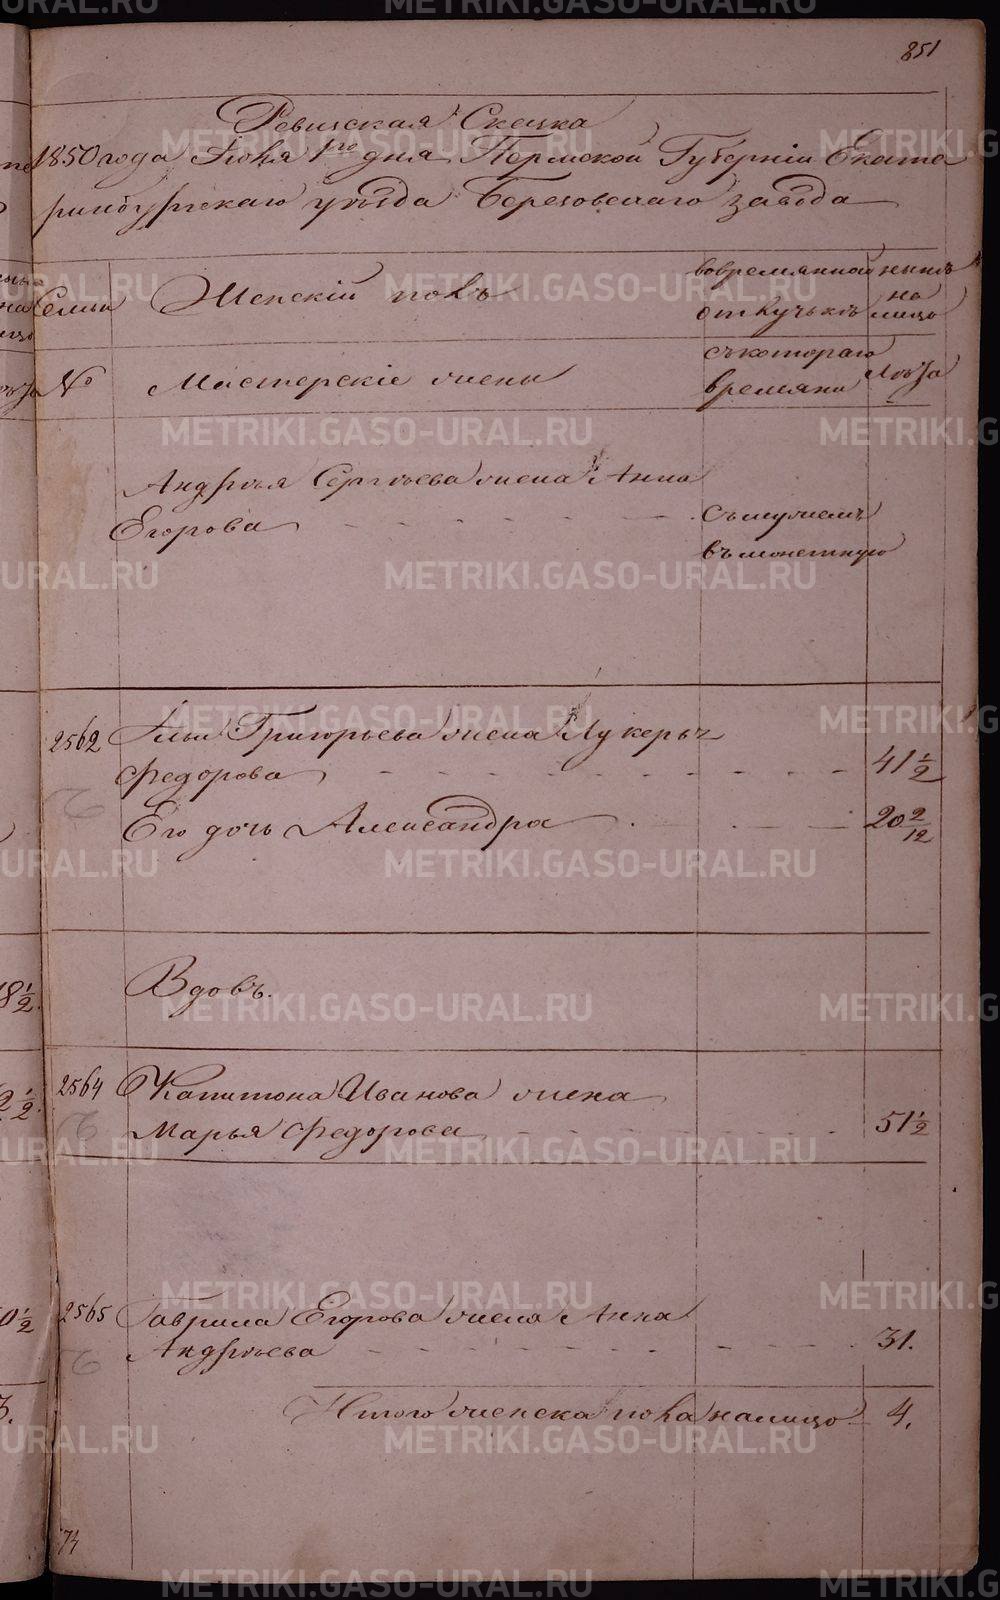 851
Ревизская Сказка
1850 года Июня 1го дня Пермской Губерніи Екате
ринбургскаго уѣзда Березовскаго завода
Семьи
Женскій полъ
вовремянной
отлучькѣ
нынѣ
на
лицо
№
Мастерскіе жены
съкотораго
времяни
Лѣта
Андрѣя Сергѣева жена Анна
Егорова
съмужемъ
въмонетную
2562
Ильи Григорьева жена Лукерья
Федорова
41 1/2
Его дочь Александра
20 2/12
Вдовъ.
2564
Капитона Иванова жена
Марья Федорова
51 1/2
2565
Гаврила Егорова жена Анна
Андрѣева
31.
Итого женска пола налицо
4.
74
METRIKI.GASO-URAL.RU